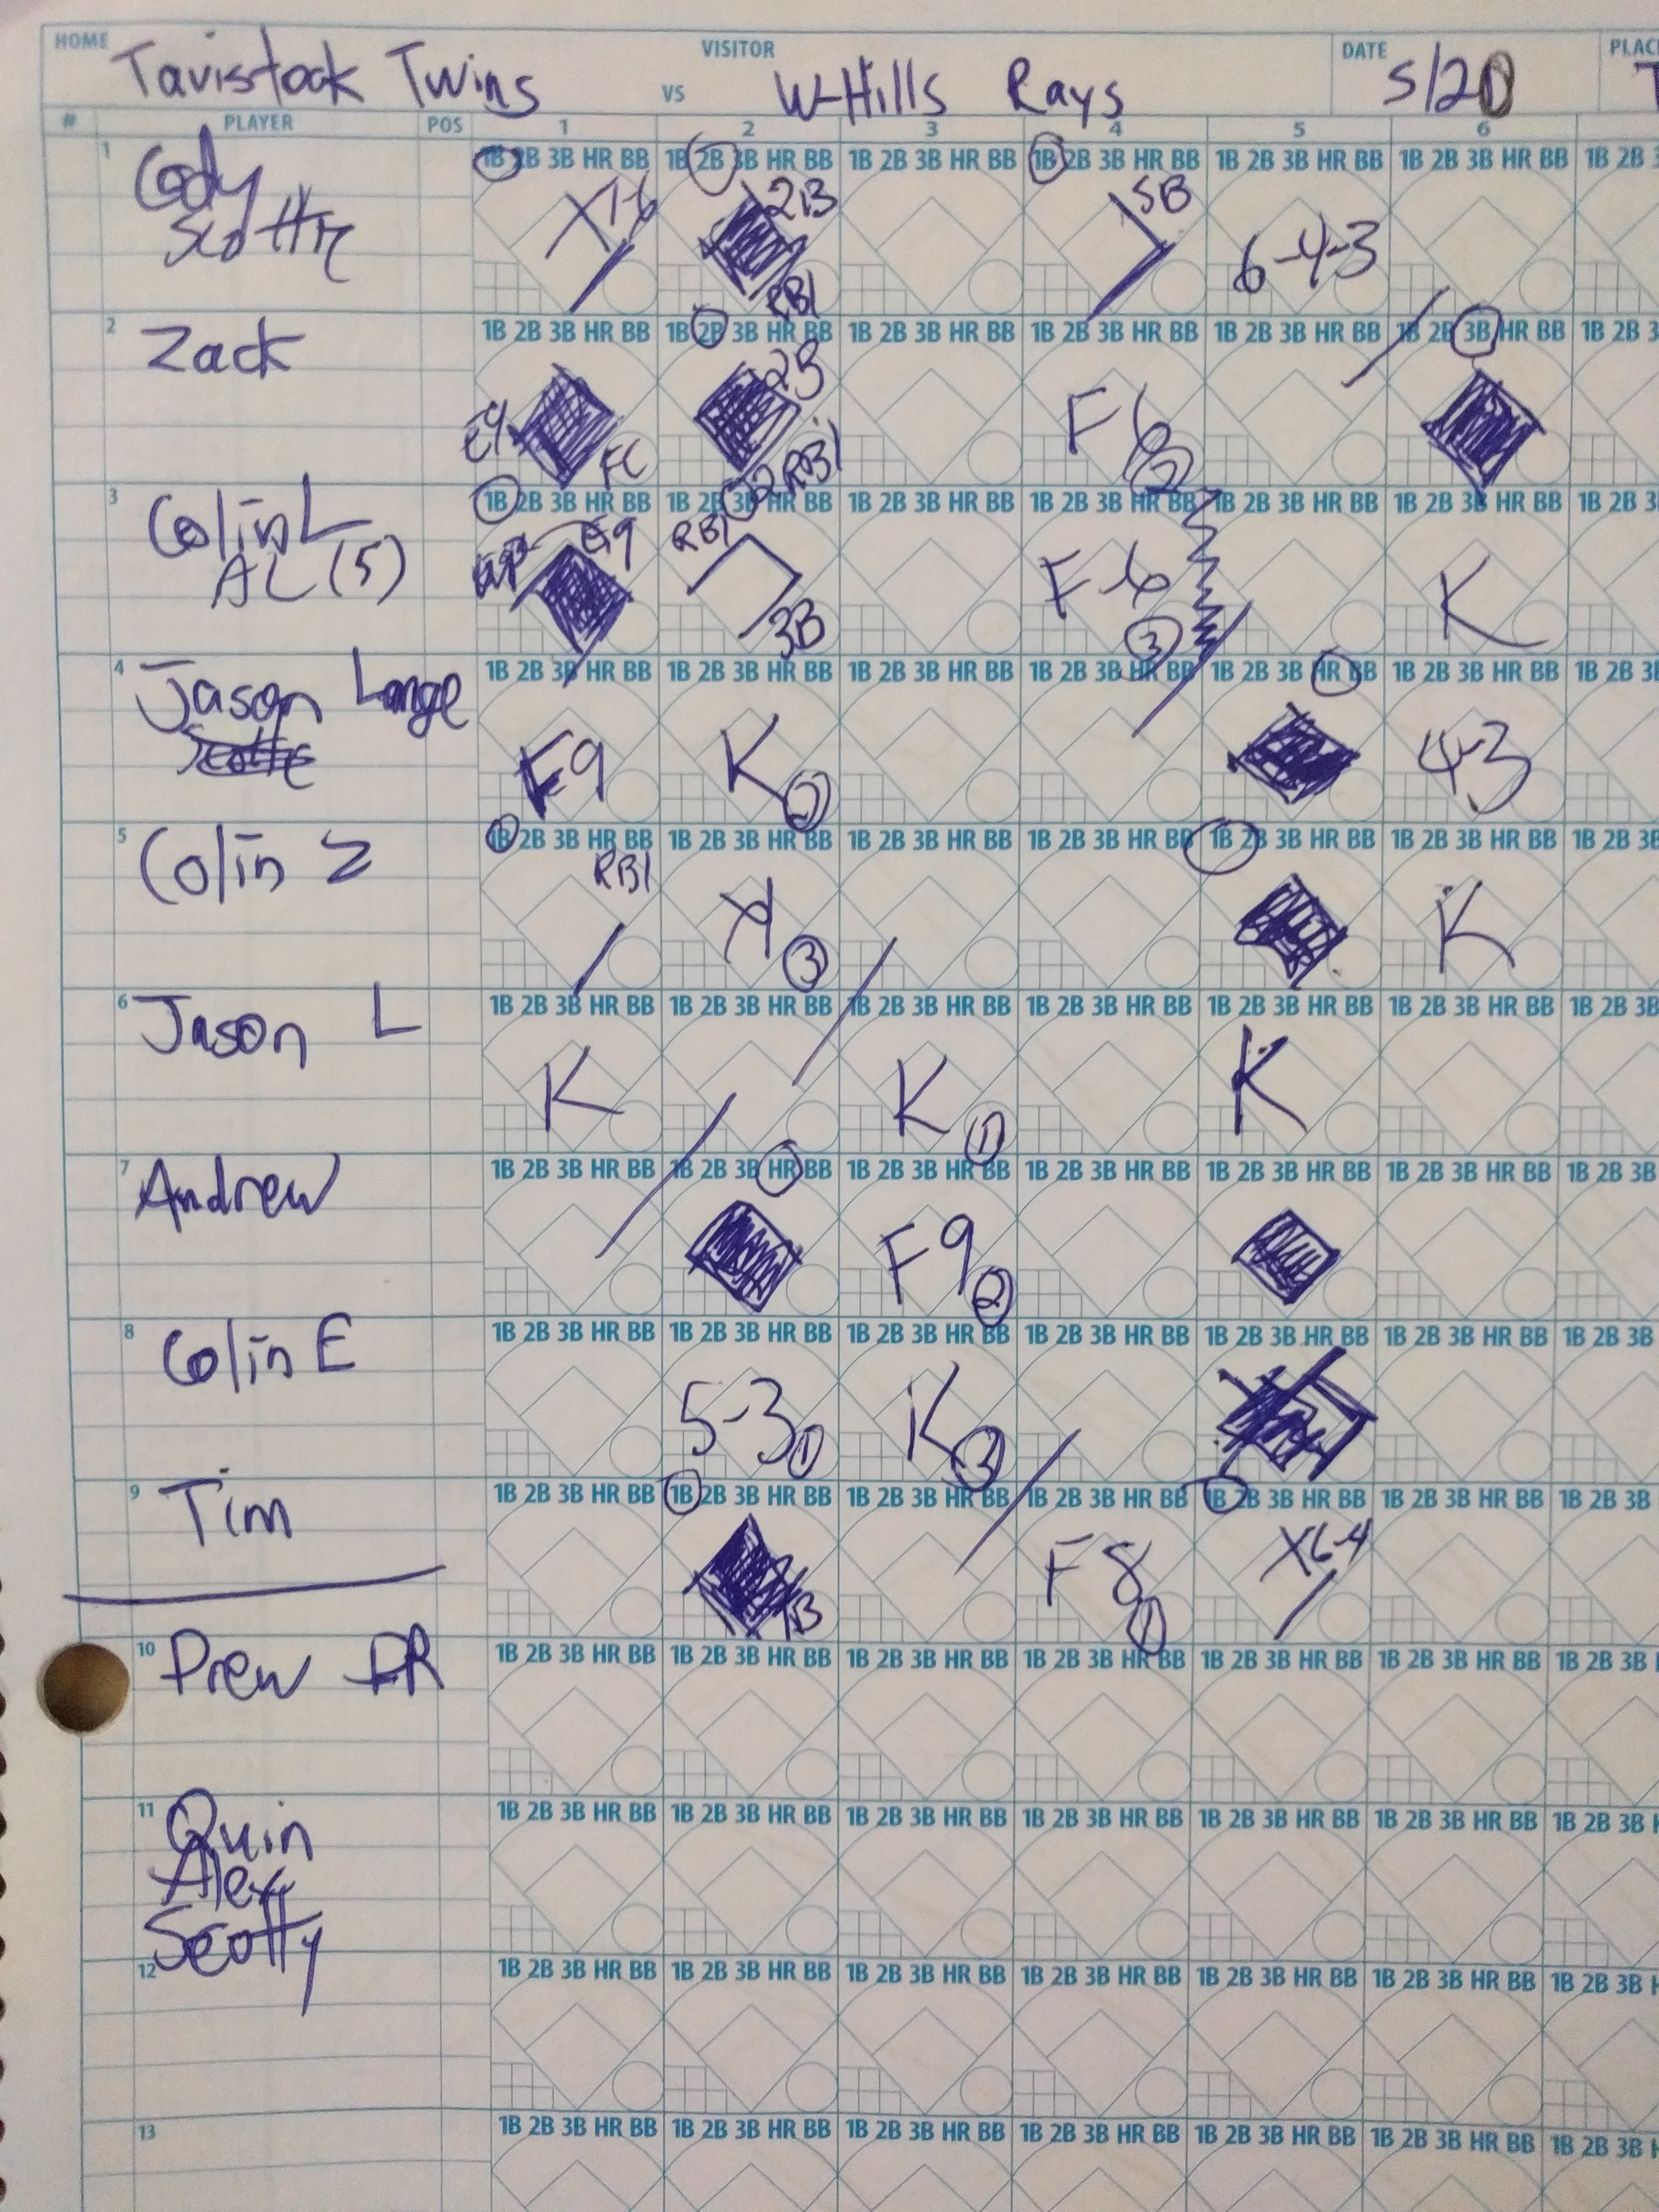 HOME VISITOR DATE
Tavistock Twins VS W-Hills Rays 5/20
# PLAYER POS 1 2 3 4 5 6
1 Cody 1B 2B 3B HR BB 1B 2B 3B HR BB 1B 2B 3B HR BB 1B 2B 3B HR BB 1B 2B 3B HR BB 1B 2B 3B HR BB 1B 2B
2B SB
6-4-3
RBI
2 Zack 1B 2B 3B HR BB 1B 2B 3B HR BB 1B 2B 3B HR BB 1B 2B 3B HR BB 1B 2B 3B HR BB 1B 2B 3B HR BB 1B 2B 3
2B
E9 FC 2RBI F6 2
3 Colin L 1B 2B 3B HR BB 1B 2B 3B HR BB 1B 2B 3B HR BB 1B 2B 3B HR BB 1B 2B 3B HR BB 1B 2B 3B HR BB 1B 2B 3
AL (5) E9 RBI 3B F6 3 K
4 Jason Lange 1B 2B 3B HR BB 1B 2B 3B HR BB 1B 2B 3B HR BB 1B 2B 3B HR BB 1B 2B 3B HR BB 1B 2B 3B HR BB 1B 2B 3B
F9 K 2 4-3
5 Colin Z 1B 2B 3B HR BB 1B 2B 3B HR BB 1B 2B 3B HR BB 1B 2B 3B HR BB 1B 2B 3B HR BB 1B 2B 3B HR BB 1B 2B 3B
RBI 3 K
6 Jason L 1B 2B 3B HR BB 1B 2B 3B HR BB 1B 2B 3B HR BB 1B 2B 3B HR BB 1B 2B 3B HR BB 1B 2B 3B HR BB 1B 2B 3B
K K 1 K
7 Andrew 1B 2B 3B HR BB 1B 2B 3B HR BB 1B 2B 3B HR BB 1B 2B 3B HR BB 1B 2B 3B HR BB 1B 2B 3B HR BB 1B 2B 3B
F9 2
8 Colin E 1B 2B 3B HR BB 1B 2B 3B HR BB 1B 2B 3B HR BB 1B 2B 3B HR BB 1B 2B 3B HR BB 1B 2B 3B HR BB 1B 2B 3B
5-3 1 K 3
9 Tim 1B 2B 3B HR BB 1B 2B 3B HR BB 1B 2B 3B HR BB 1B 2B 3B HR BB 1B 2B 3B HR BB 1B 2B 3B HR BB 1B 2B 3B
1B F8 1 X6-4
10 Drew 1B 2B 3B HR BB 1B 2B 3B HR BB 1B 2B 3B HR BB 1B 2B 3B HR BB 1B 2B 3B HR BB 1B 2B 3B HR BB 1B 2B 3B
11 Quin 1B 2B 3B HR BB 1B 2B 3B HR BB 1B 2B 3B HR BB 1B 2B 3B HR BB 1B 2B 3B HR BB 1B 2B 3B HR BB 1B 2B 3B
Alex
Scotty
12 1B 2B 3B HR BB 1B 2B 3B HR BB 1B 2B 3B HR BB 1B 2B 3B HR BB 1B 2B 3B HR BB 1B 2B 3B HR BB 1B 2B 3B
13 1B 2B 3B HR BB 1B 2B 3B HR BB 1B 2B 3B HR BB 1B 2B 3B HR BB 1B 2B 3B HR BB 1B 2B 3B HR BB 1B 2B 3B